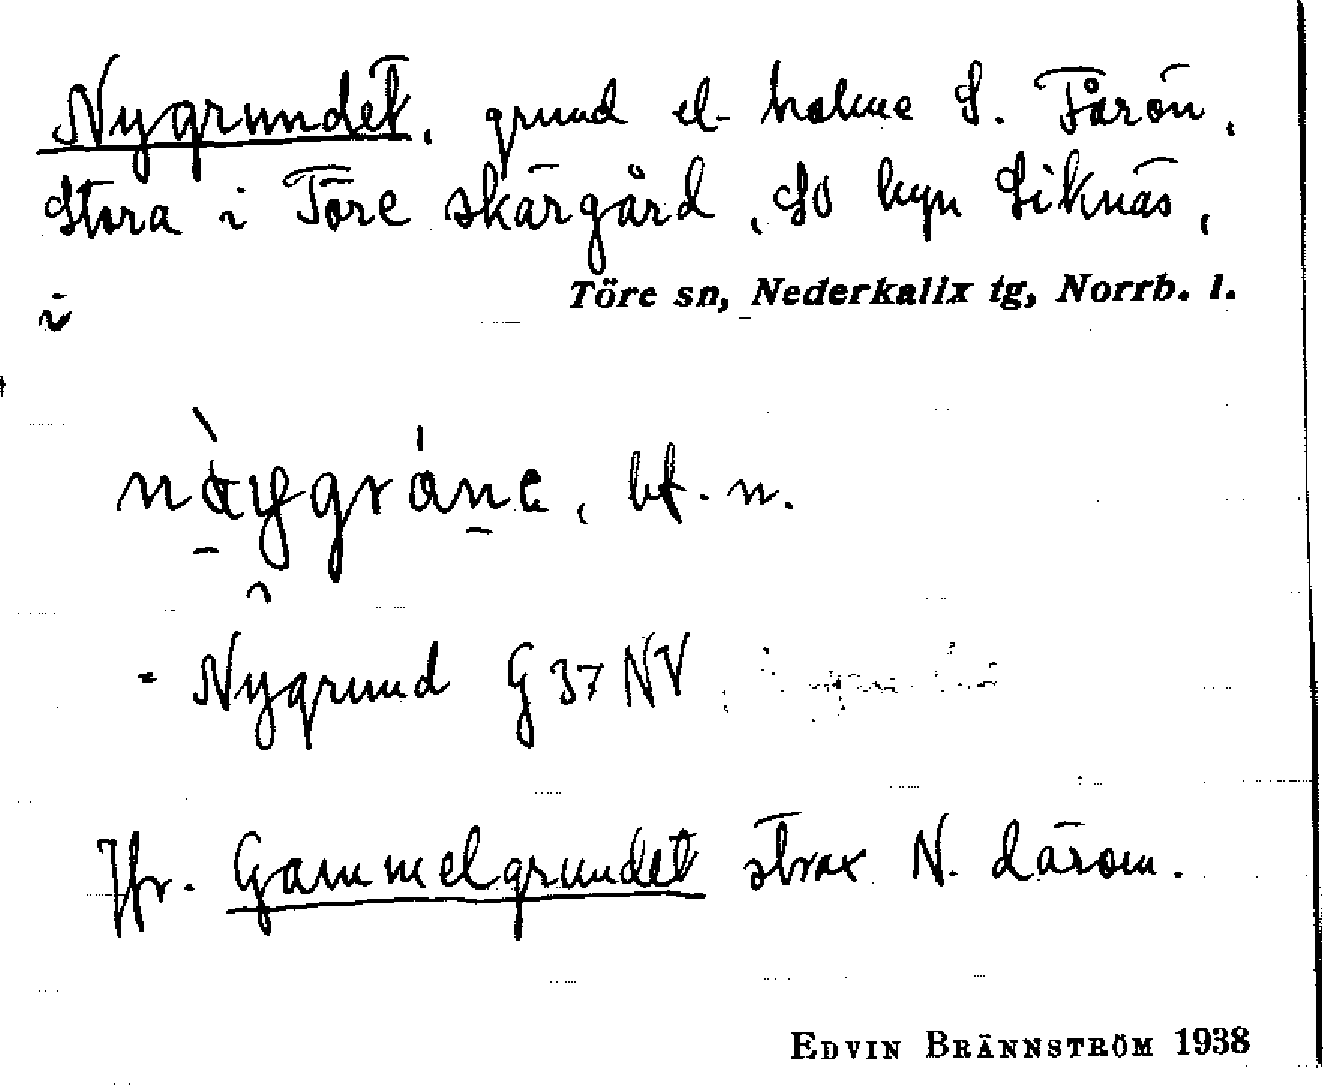 Nygrundet, grund el. holme S. Fårön,
Stora i Töre skärgård, SO byn Siknäs,
i
Töre sn, Nederkalix tg, Norrb. l.
bf. n.
= Nygrund G 37 NV
Jfr. Gammelgrundet strax N. därom.
EDVIN BRÄNNSTRÖM 1938